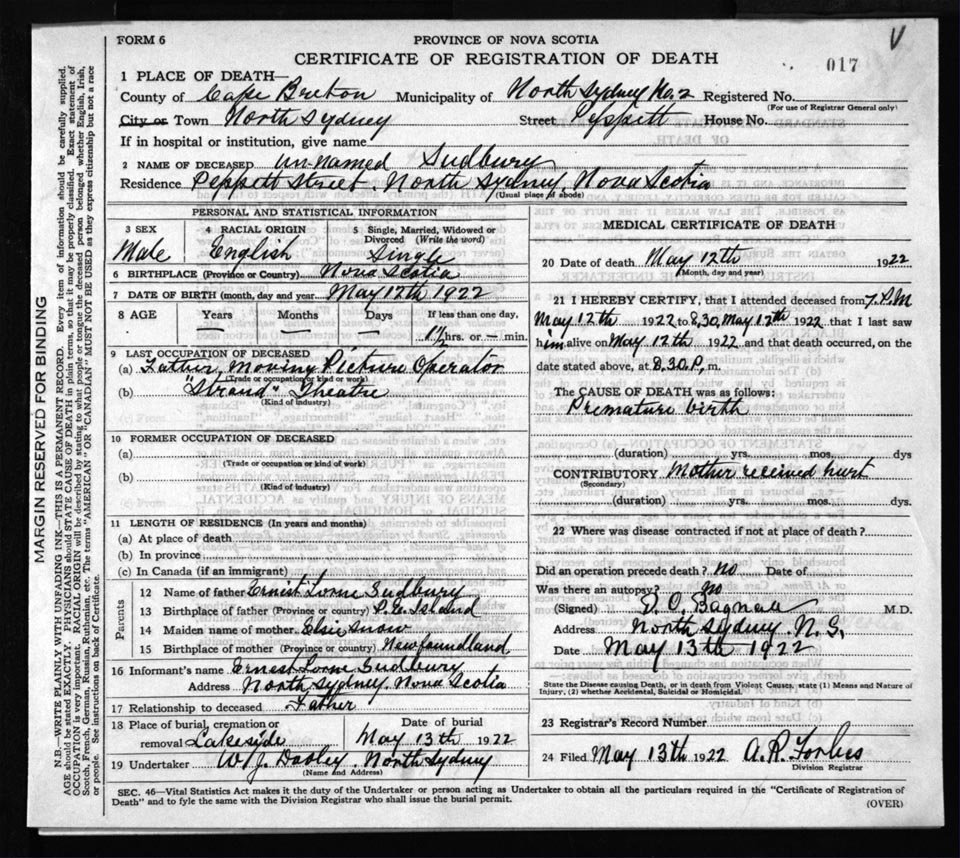 FORM 6
PROVINCE OF NOVA SCOTIA
CERTIFICATE OF REGISTRATION OF DEATH
017
1 PLACE OF DEATH—
County of Cape Breton Municipality of North Sydney No. 2 Registered No.
(For use of Registrar General only)
City or Town North Sydney Street Peppett House No.
If in hospital or institution, give name
2 NAME OF DECEASED un-named Sudbury
Residence Peppett Street, North Sydney, Nova Scotia
(Usual place of abode)
PERSONAL AND STATISTICAL INFORMATION
3 SEX 4 RACIAL ORIGIN 5 Single, Married, Widowed or Divorced (Write the word)
Male English Single
6 BIRTHPLACE (Province or Country) Nova Scotia
7 DATE OF BIRTH (month, day and year) May 12th 1922
8 AGE Years Months Days If less than one day,
— — — 1½ hrs. or — min.
9 LAST OCCUPATION OF DECEASED
(a) Father, Moving Picture Operator
(Trade or occupation or kind of work)
(b) "Strand" Theatre
(Kind of industry)
10 FORMER OCCUPATION OF DECEASED
(a)
(Trade or occupation or kind of work)
(b)
(Kind of industry)
11 LENGTH OF RESIDENCE (In years and months)
(a) At place of death
(b) In province
(c) In Canada (if an immigrant)
Parents
12 Name of father Ernest Lorne Sudbury
13 Birthplace of father (Province or country) P.E. Island
14 Maiden name of mother Elsie Snow
15 Birthplace of mother (Province or country) Newfoundland
16 Informant's name Ernest Lorne Sudbury
Address North Sydney, Nova Scotia
17 Relationship to deceased Father
18 Place of burial, cremation or removal Lakeside
Date of burial May 13th 1922
19 Undertaker W. J. Dooley, North Sydney
(Name and Address)
MEDICAL CERTIFICATE OF DEATH
20 Date of death May 12th 1922
(Month, day and year)
21 I HEREBY CERTIFY, that I attended deceased from 7. P.M
May 12th 1922 to 8,30, May 12th 1922 that I last saw
him alive on May 12th 1922 and that death occurred, on the
date stated above, at 8.30 P. m.
The CAUSE OF DEATH was as follows:
Premature birth
(duration) yrs. mos. dys.
CONTRIBUTORY Mother received hurt
(Secondary)
(duration) yrs. mos. dys.
22 Where was disease contracted if not at place of death?
Did an operation precede death? No Date of
Was there an autopsy? No
(Signed) D. O. Bagnall M.D.
Address North Sydney N.S.
Date May 13th 1922
State the Disease causing Death, or in death from Violent Causes, state (1) Means and Nature of
Injury, (2) whether Accidental, Suicidal or Homicidal.
23 Registrar's Record Number
24 Filed May 13th 1922 A. R. Forbes
Division Registrar
SEC. 46—Vital Statistics Act makes it the duty of the Undertaker or person acting as Undertaker to obtain all the particulars required in the "Certificate of Registration of
Death" and to fyle the same with the Division Registrar who shall issue the burial permit.
(OVER)
MARGIN RESERVED FOR BINDING
N.B.—WRITE PLAINLY WITH UNFADING INK—THIS IS A PERMANENT RECORD. Every item of information should be carefully supplied.
AGE should be stated EXACTLY. PHYSICIANS should STATE CAUSE OF DEATH in plain terms, so that it may be properly classified. Exact statement of
OCCUPATION is very important. RACIAL ORIGIN will be described by stating to what people or tongue the deceased person belonged whether English, Irish,
Scotch, French, German, Russian, Ruthenian, etc. The terms "AMERICAN" OR "CANADIAN" MUST NOT BE USED as they express citizenship but not a race
or people. See instructions on back of Certificate.